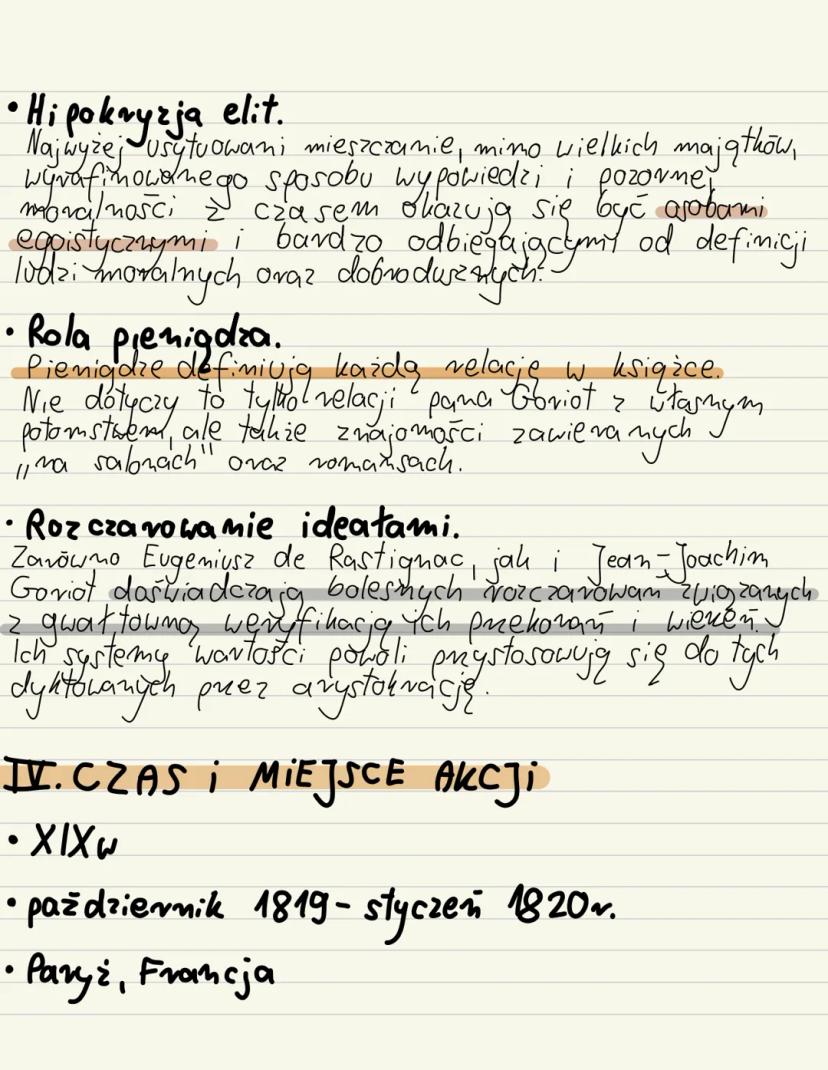 • Hipokryzja elit.
Najwyżej usytuowani mieszczanie, mimo wielkich majątków,
wyrafinowanego sposobu wypowiedzi i pozornej
moralności z czasem okazują się być osobami
egoistycznymi i bardzo odbiegającymi od definicji
ludzi moralnych oraz dobrodusznych.
• Rola pieniądza.
Pieniądze definiują każdą relację w książce.
Nie dotyczy to tylko relacji pana Goriot z własnym
potomstwem, ale także znajomości zawieranych
„na salonach" oraz romansach.
• Rozczarowanie ideałami.
Zarówno Eugeniusz de Rastignac, jak i Jean-Joachim
Goriot doświadczają bolesnych rozczarowań związanych
z gwałtowną weryfikacją ich przekonań i wierzeń.
Ich systemy wartości powoli przystosowują się do tych
dyktowanych przez arystokrację.
IV. CZAS i MIEJSCE AKCJi
• XIXw
• październik 1819 - styczeń 1820r.
• Paryż, Francja